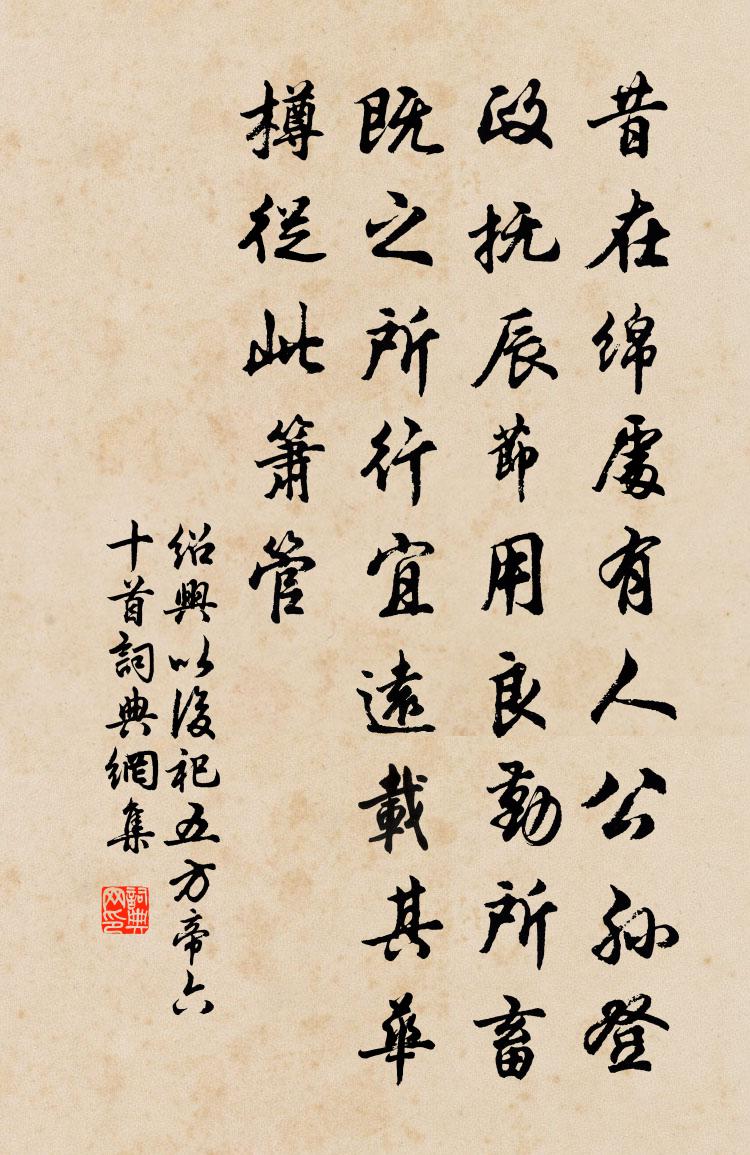 昔在綿處有人公孫登
政抚辰節用良勤所畜
既之所行宜遠載其華
樽從此簫管
紹興以後祀五方帝六
十首詞典網集
詞典网印